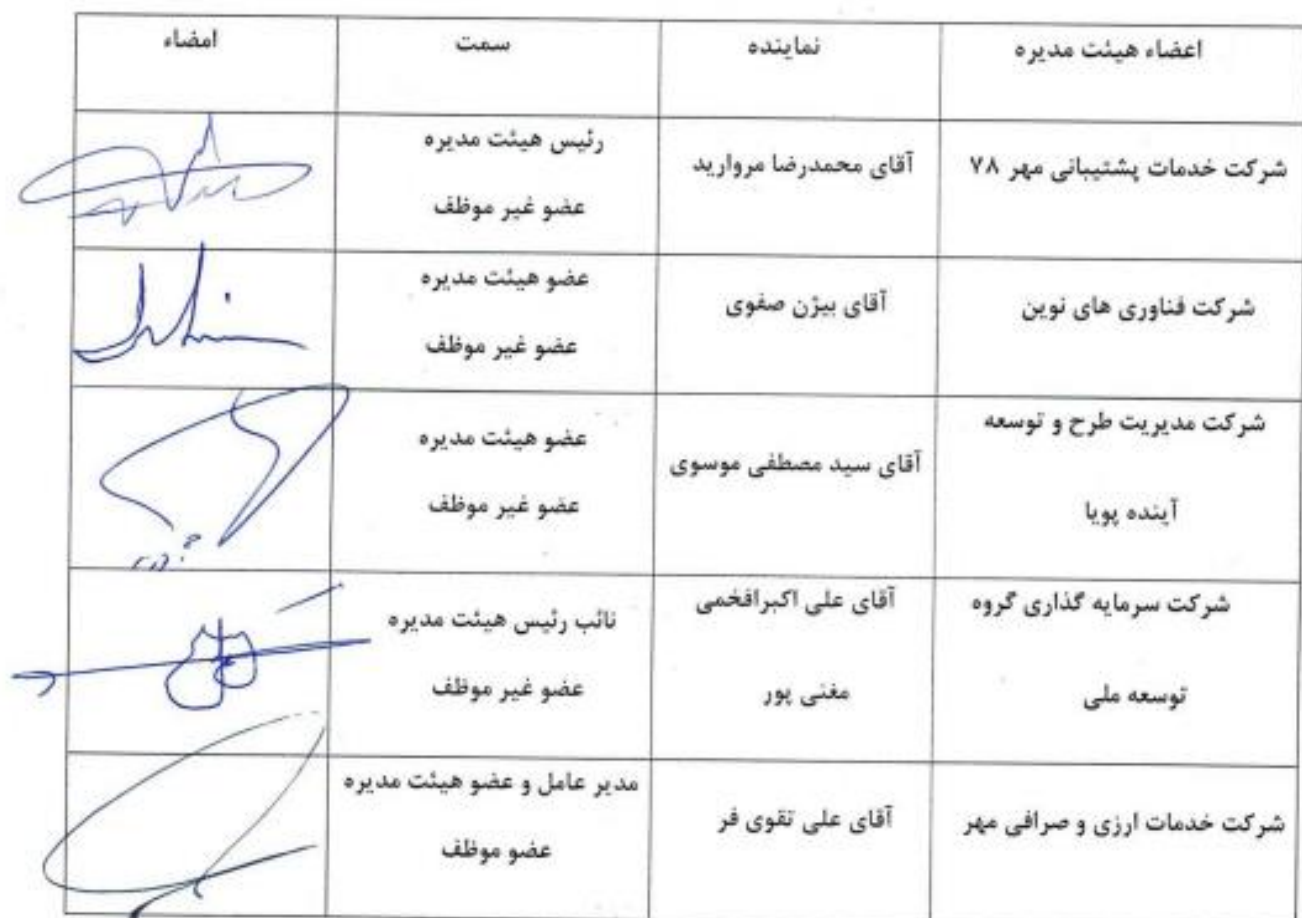 اعضاء هیئت مدیره نماینده سمت امضاء
شرکت خدمات پشتیبانی مهر ۷۸ آقای محمدرضا مروارید رئیس هیئت مدیره
عضو غیر موظف
شرکت فناوری های نوین آقای بیژن صفوی عضو هیئت مدیره
عضو غیر موظف
شرکت مدیریت طرح و توسعه آقای سید مصطفی موسوی عضو هیئت مدیره
آینده پویا عضو غیر موظف
شرکت سرمایه گذاری گروه آقای علی اکبرافخمی نائب رئیس هیئت مدیره
توسعه ملی مغنی پور عضو غیر موظف
شرکت خدمات ارزی و صرافی مهر آقای علی تقوی فر مدیر عامل و عضو هیئت مدیره
عضو موظف